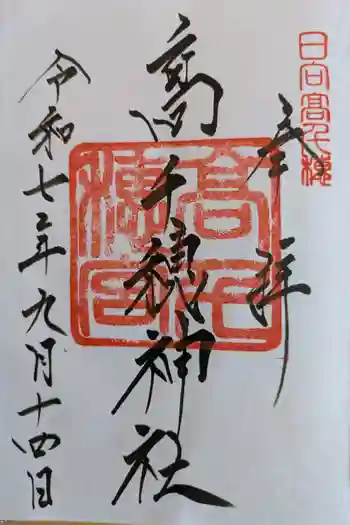 日向高千穂
奉拝
高千穂神社
高千穂宮
令和七年九月十四日